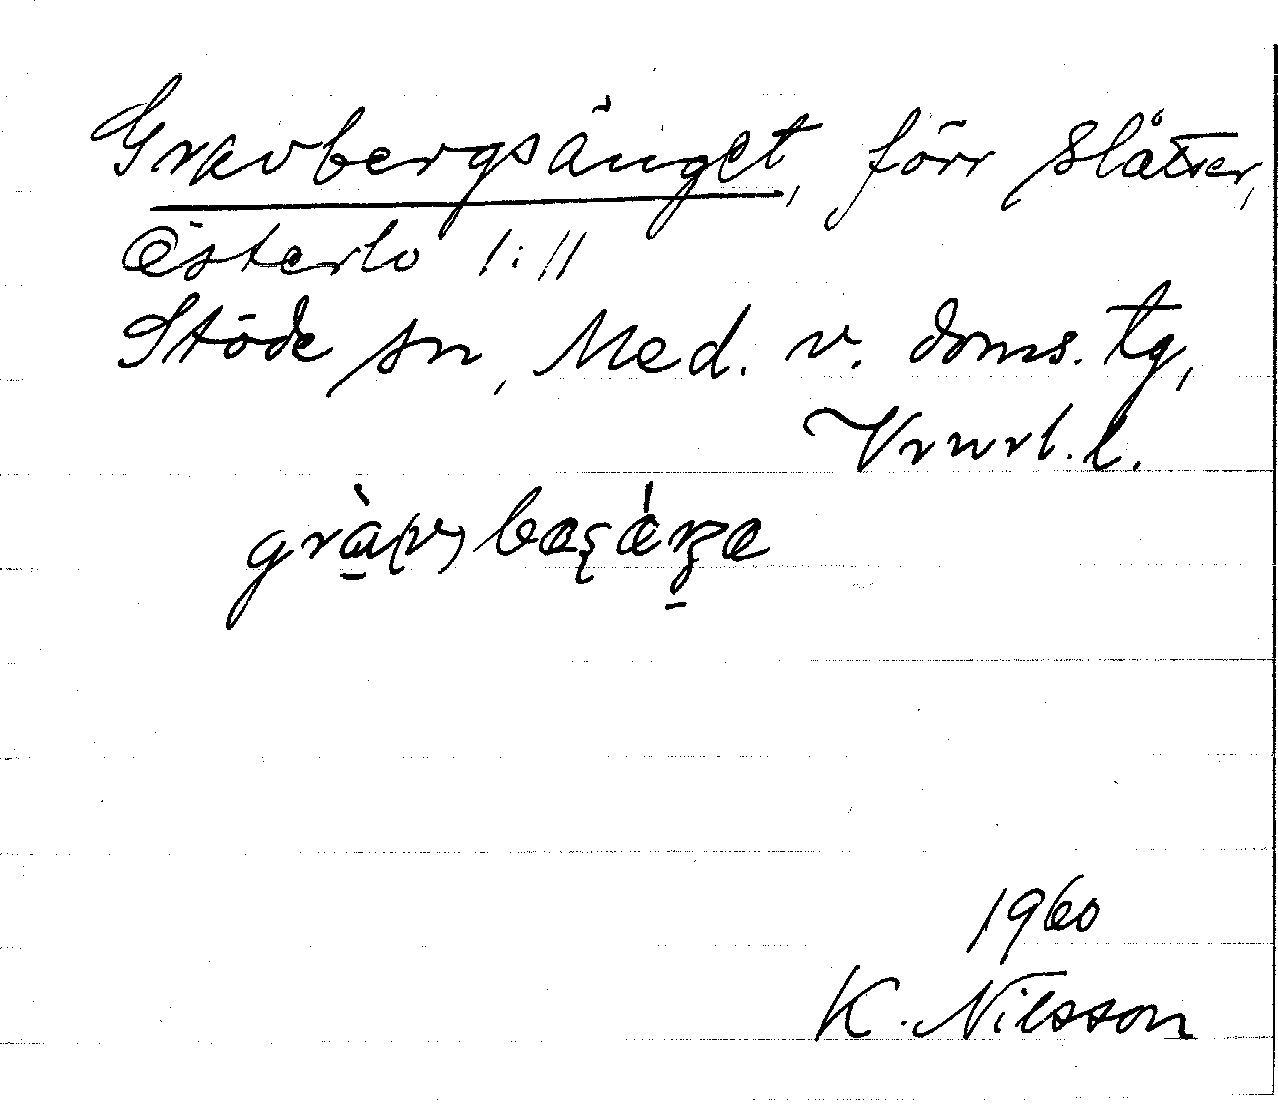 Gravbergsänget, förr slåtter,
Österlo 1:11
Stöde sn, Med. v. doms. tg,
Vrnrl. l.
1960
K. Nilsson